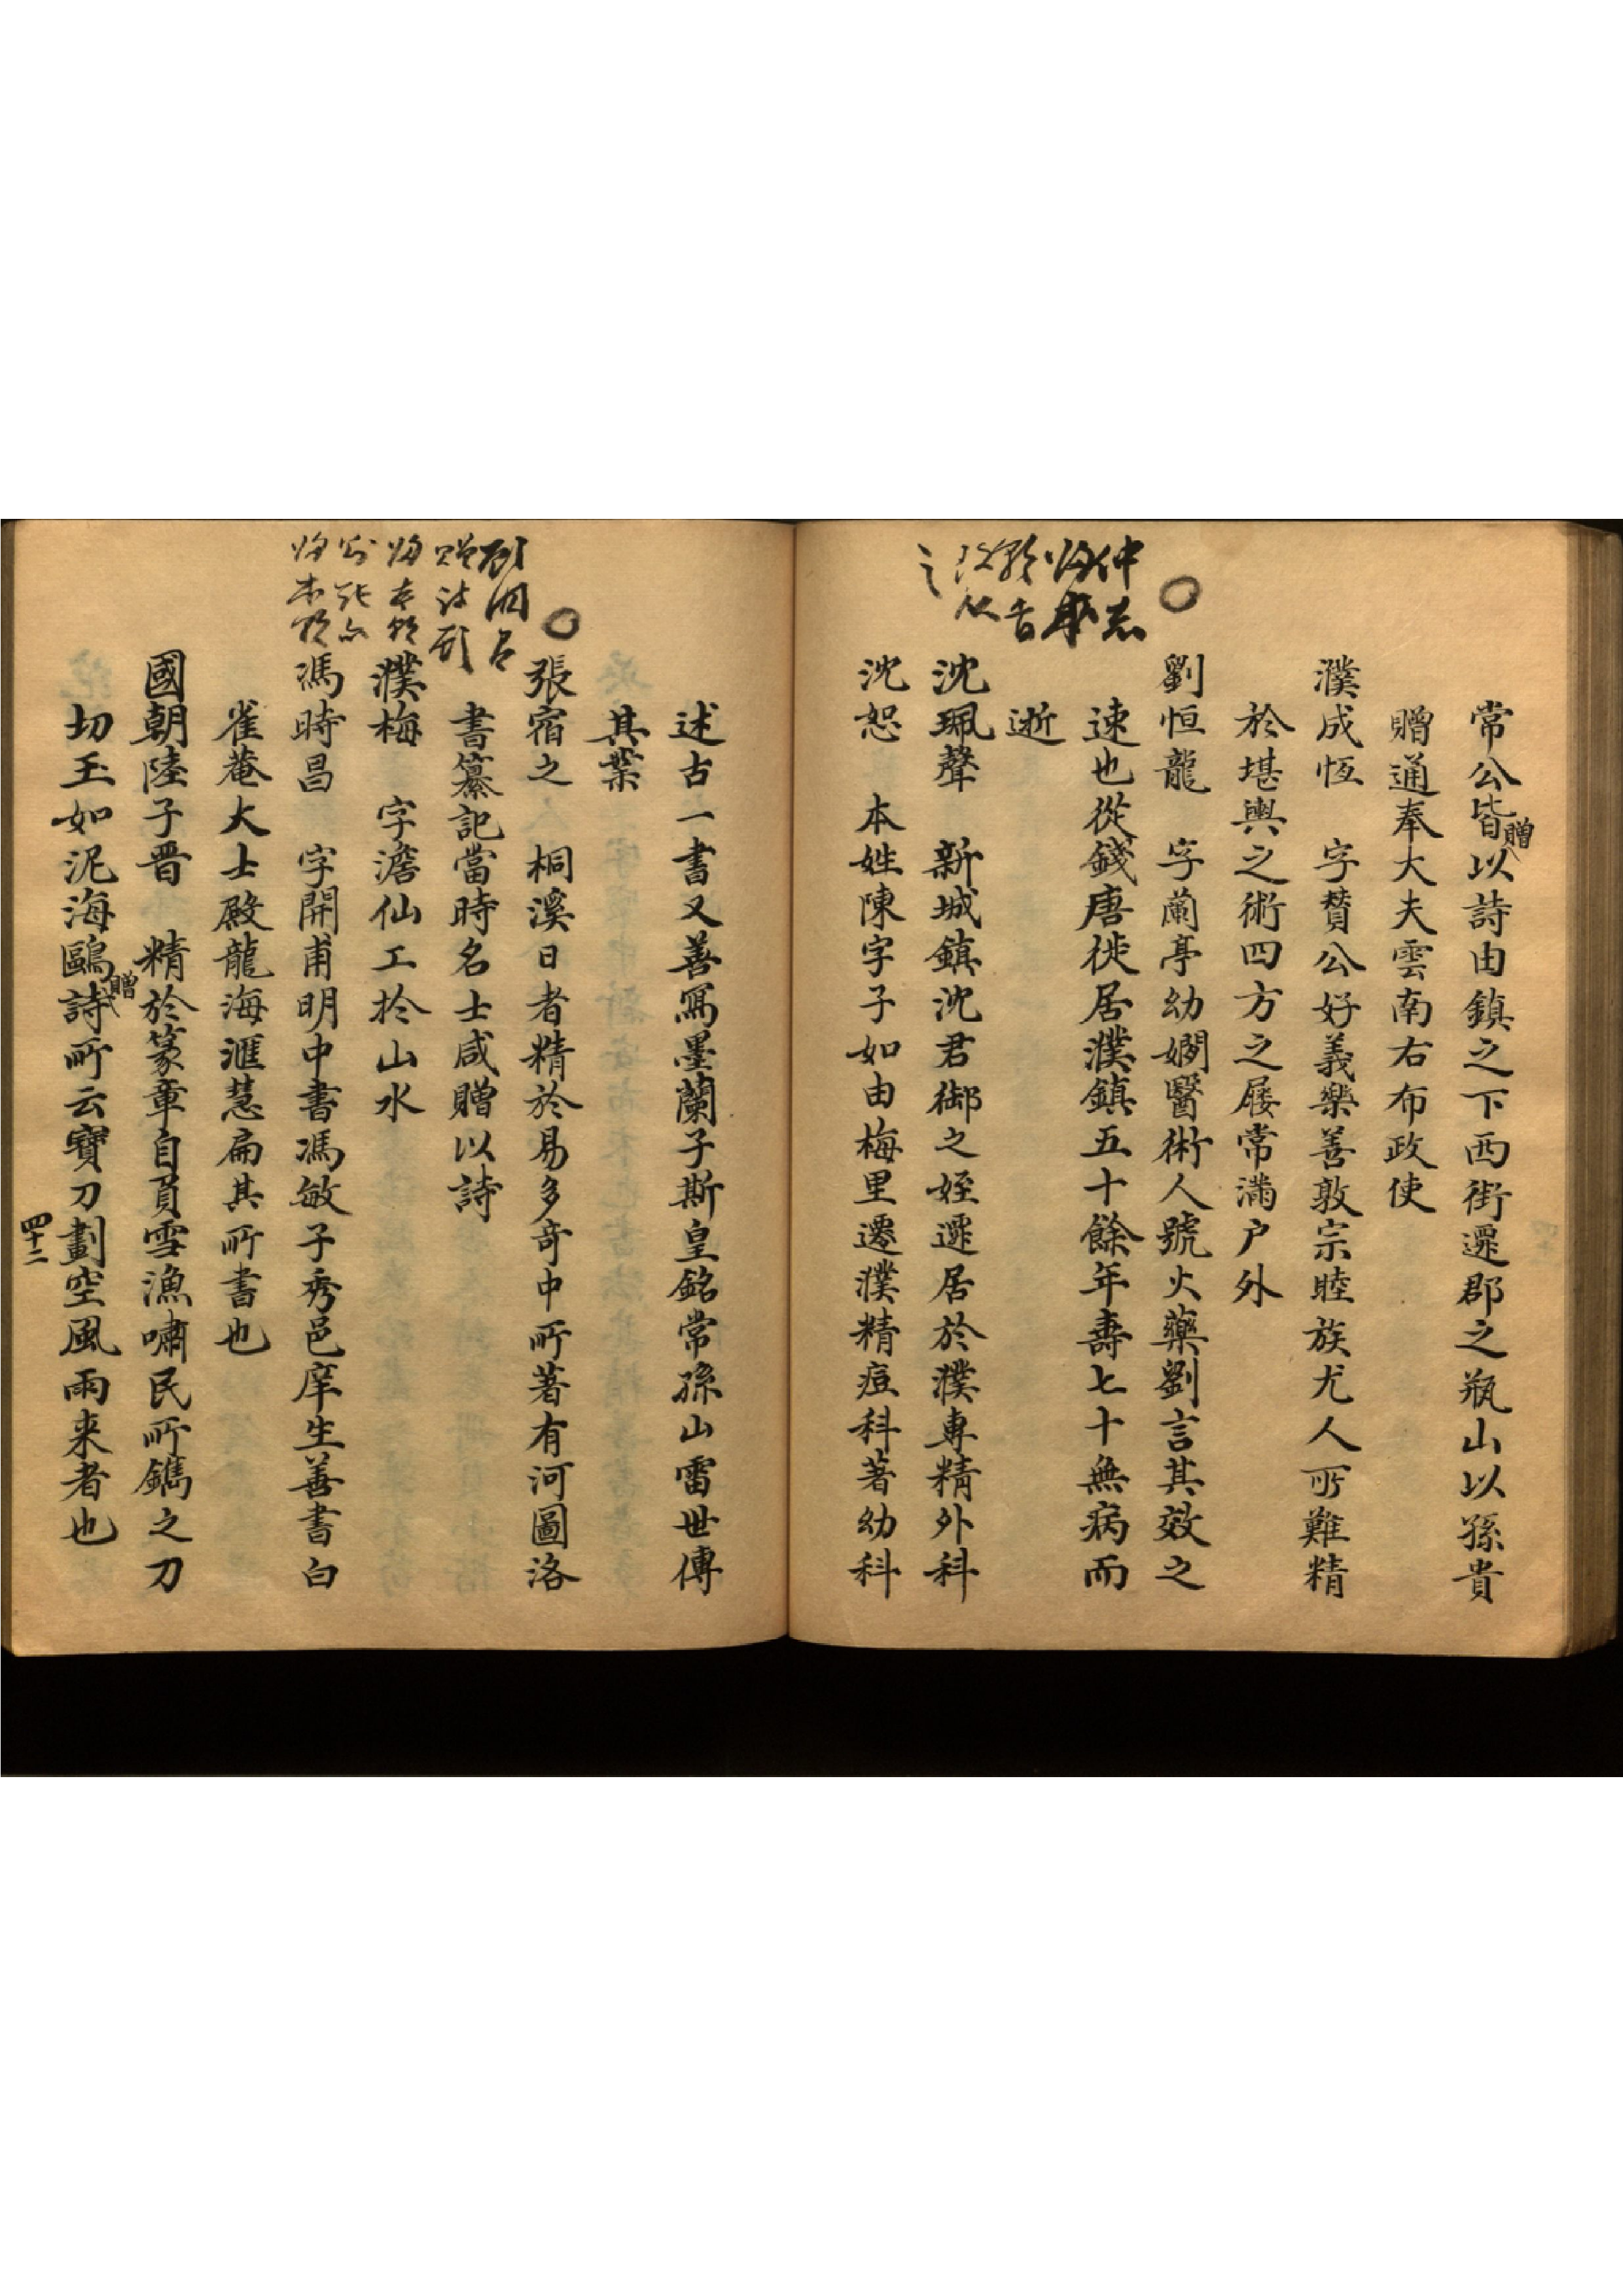 常公皆贈以詩由鎮之下西街遷郡之瓶山以孫貴
贈通奉大夫雲南右布政使
濮成恆　字贊公好義樂善敦宗睦族尤人所難精
於堪輿之術四方之屐常滿户外
劉恒龍　字蘭亭幼嫻醫術人號火藥劉言其效之
速也從錢唐徙居濮鎮五十餘年壽七十無病而
逝
沈珮聲　新城鎮沈君御之姪遷居於濮專精外科
沈恕　本姓陳字子如由梅里遷濮精痘科著幼科
述古一書又善寫墨蘭子斯皇銘常孫山雷世傳
其業
張宿之　桐溪日者精於易多奇中所著有河圖洛
書纂記當時名士咸贈以詩
濮梅　字澹仙工於山水
馮時昌　字開甫明中書馮敏子秀邑庠生善書白
雀菴大士殿龍海滙慧扁其所書也
國朝陸子晋　精於篆章自負雪漁嘯民所鐫之刀
切玉如泥海鷗贈詩所云寶刀劃空風雨来者也
四十二